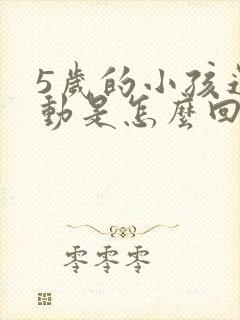 5歲的小孩過
動是怎麼回
零零零